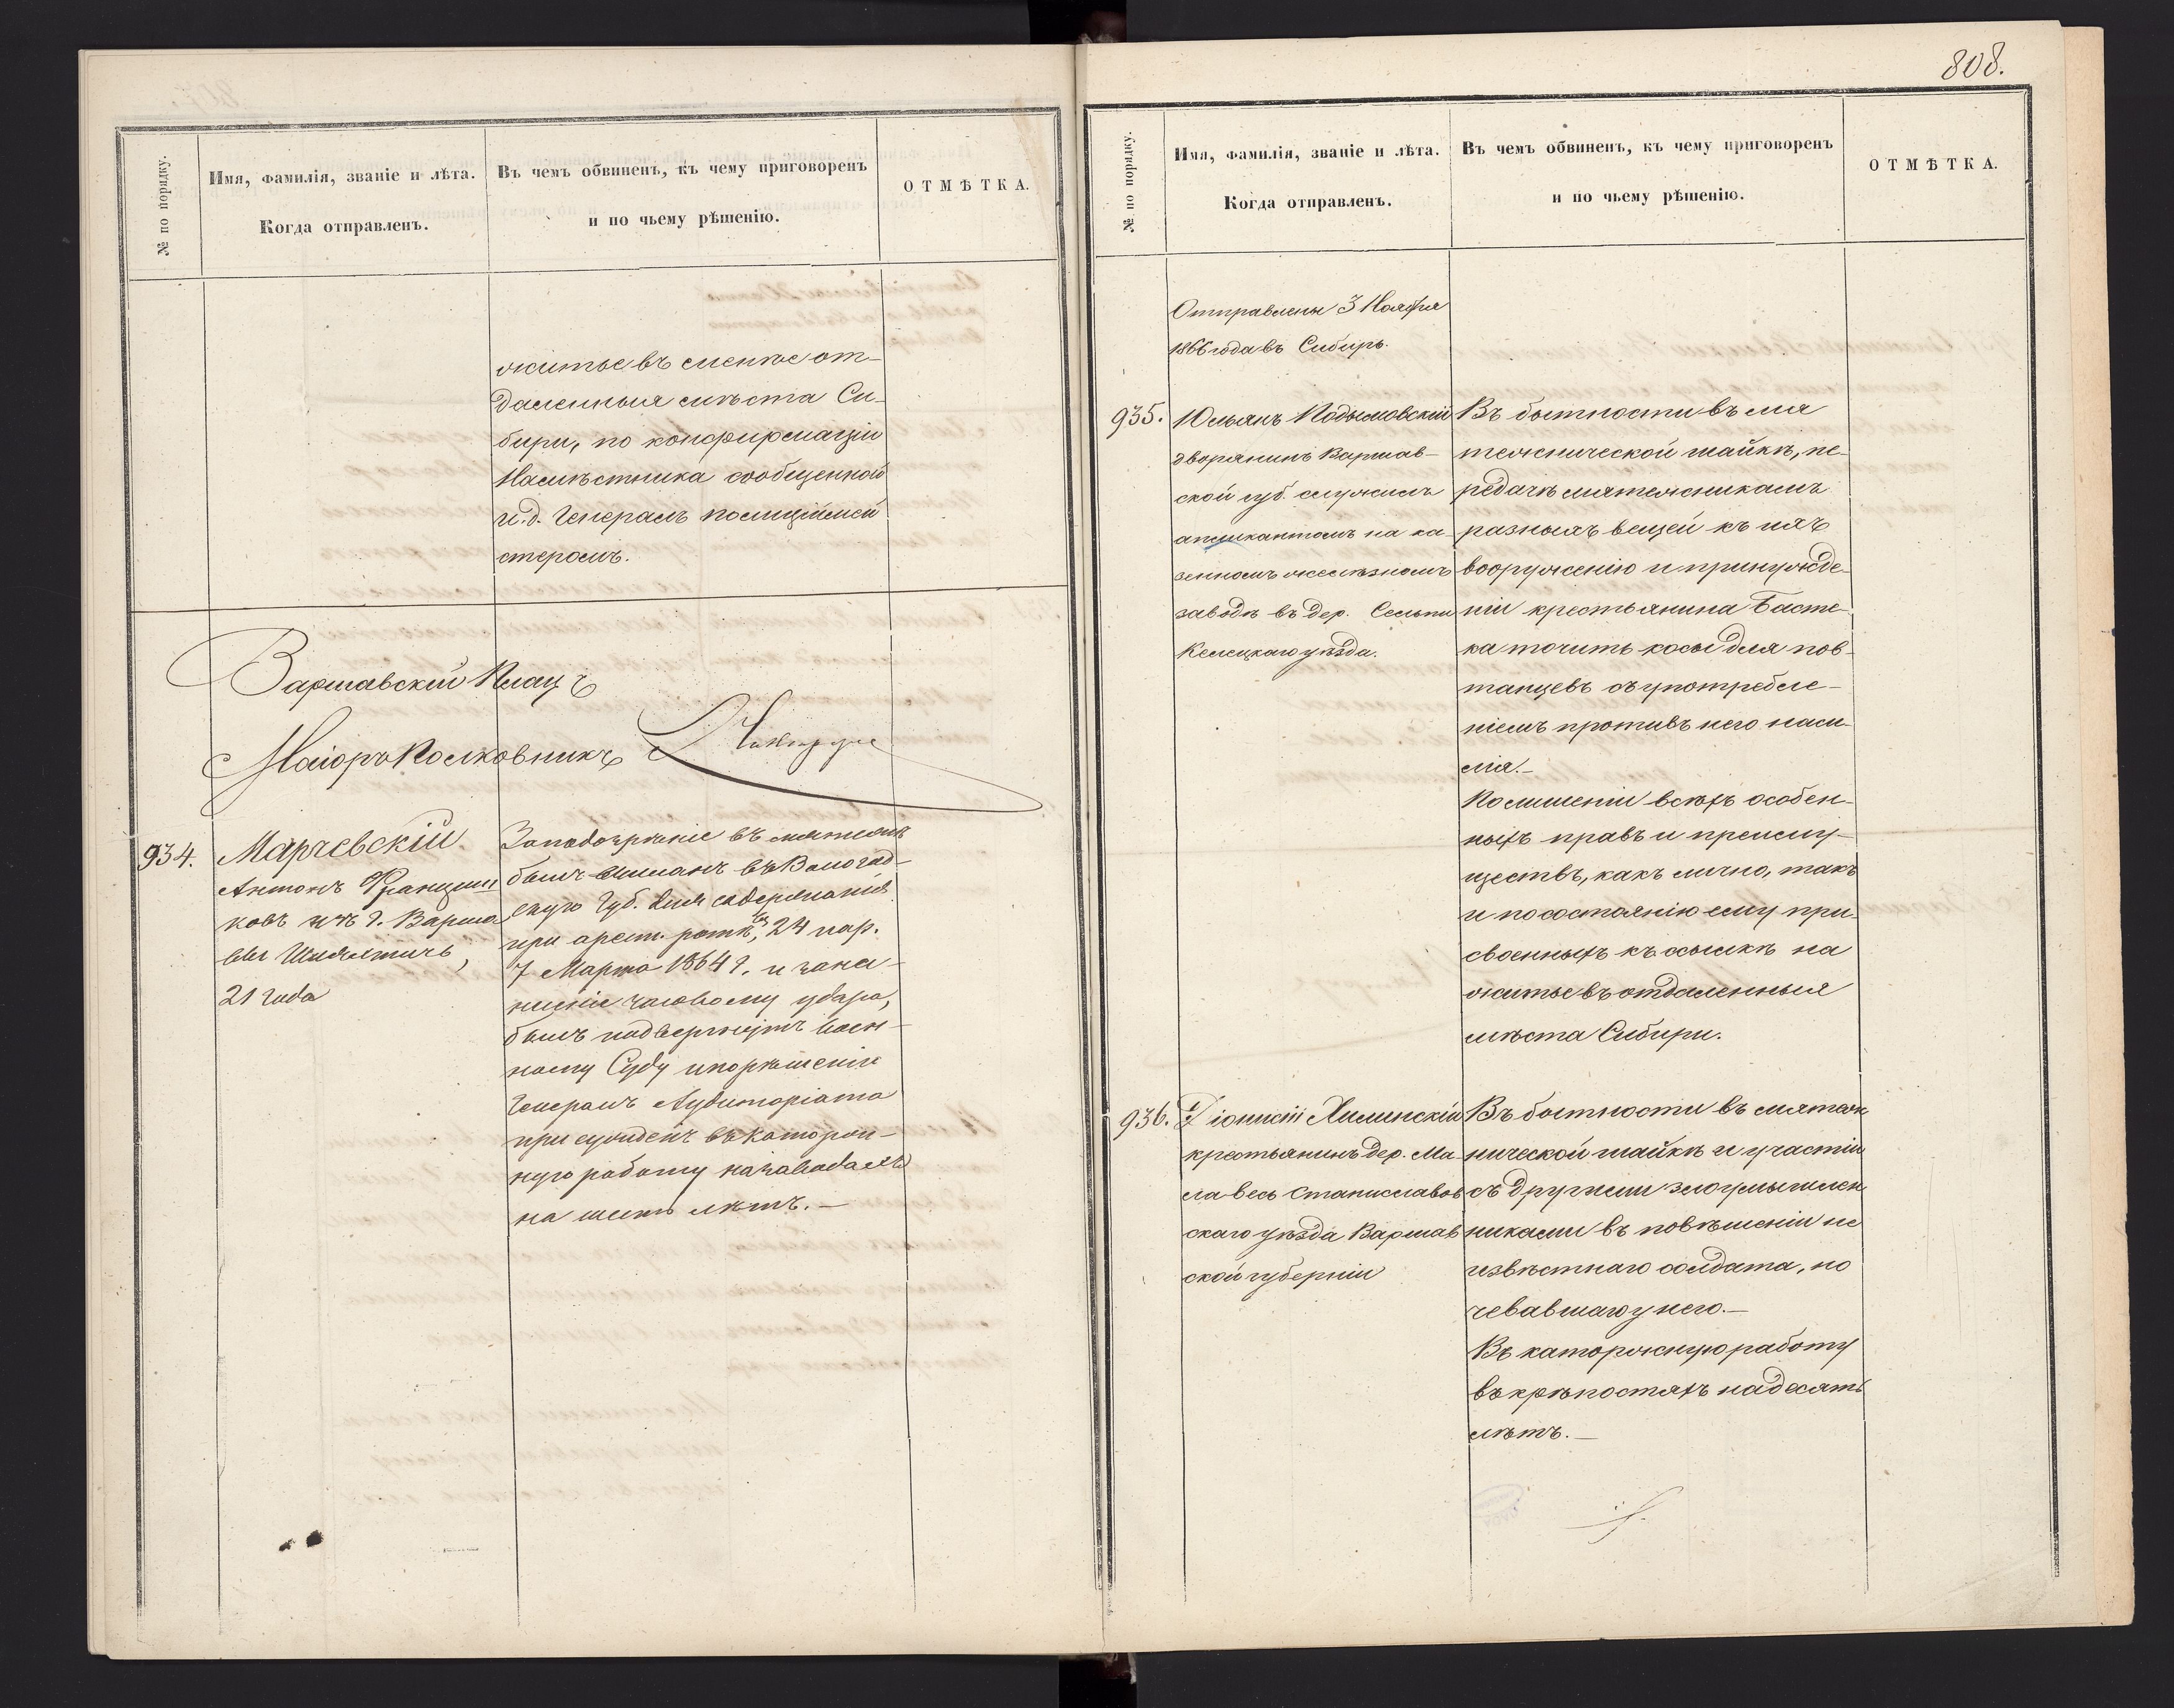 № по порядку.
Имя, фамилія, званіе и лѣта.
Когда отправленъ.
Въ чемъ обвиненъ, къ чему приговоренъ
и по чьему рѣшенію.
ОТМѢТКА.
житье въ менѣе от-
даленныя мѣста Си-
бири, по конфирмаціи
Намѣстника сообщенной
и.д. Генералъ полиціймей
стеромъ.
Варшавскій Плацъ
Маіоръ Полковникъ
934.
Марчевскій
Антонъ Францишковъ
изъ г. Варша
вы Шляхтичъ,
21 года
въ мятежѣ
былъ въ Вологод-
скую Губ. для содержанія
при арест. ротѣ, 24 пар.
7 Марта 1864 г. и за на-
несеніе часовому удара,
былъ подвергнутъ Воен-
ному Суду и по рѣшенію
Генералъ Аудиторіата
присужденъ въ каторж-
ную работу на заводахъ
на шесть лѣтъ.—
808.
№ по порядку.
Имя, фамилія, званіе и лѣта.
Когда отправленъ.
Въ чемъ обвиненъ, къ чему приговоренъ
и по чьему рѣшенію.
ОТМѢТКА.
Отправлены 3 Ноября
1866 года въ Сибирь.
935.
Юльянъ Подымовскій
дворянинъ Варшав-
ской губ. служилъ
апликантомъ на ка-
зенномъ желѣзномъ
заводѣ въ дер.
Келецкаго уѣзда.
Въ бытности въ мя
тежнической шайкѣ, пе-
редачѣ мятежникамъ
разныхъ вещей къ ихъ
вооруженію и принужде-
ніи крестьянина Басте-
ка точить косы для пов-
танцевъ съ употребле-
ніемъ противъ него наси-
лія.—
По лишеніи всѣхъ особен-
ныхъ правъ и преиму-
ществъ, какъ лично, такъ
и по состоянію ему при-
своенныхъ къ ссылкѣ на
житье въ отдаленныя
мѣста Сибири.
936.
Діонисій Хилинскій
крестьянинъ дер. Ма-
ла-весь Станиславов
скаго уѣзда Варшав
ской губерніи
Въ бытности въ мятеж
нической шайкѣ и участіи
съ другими злоумышлен
никами въ повѣшеніи не
извѣстнаго солдата, но
чевавшаго у него.—
Въ каторжную работу
въ крѣпостяхъ на десять
лѣтъ.—